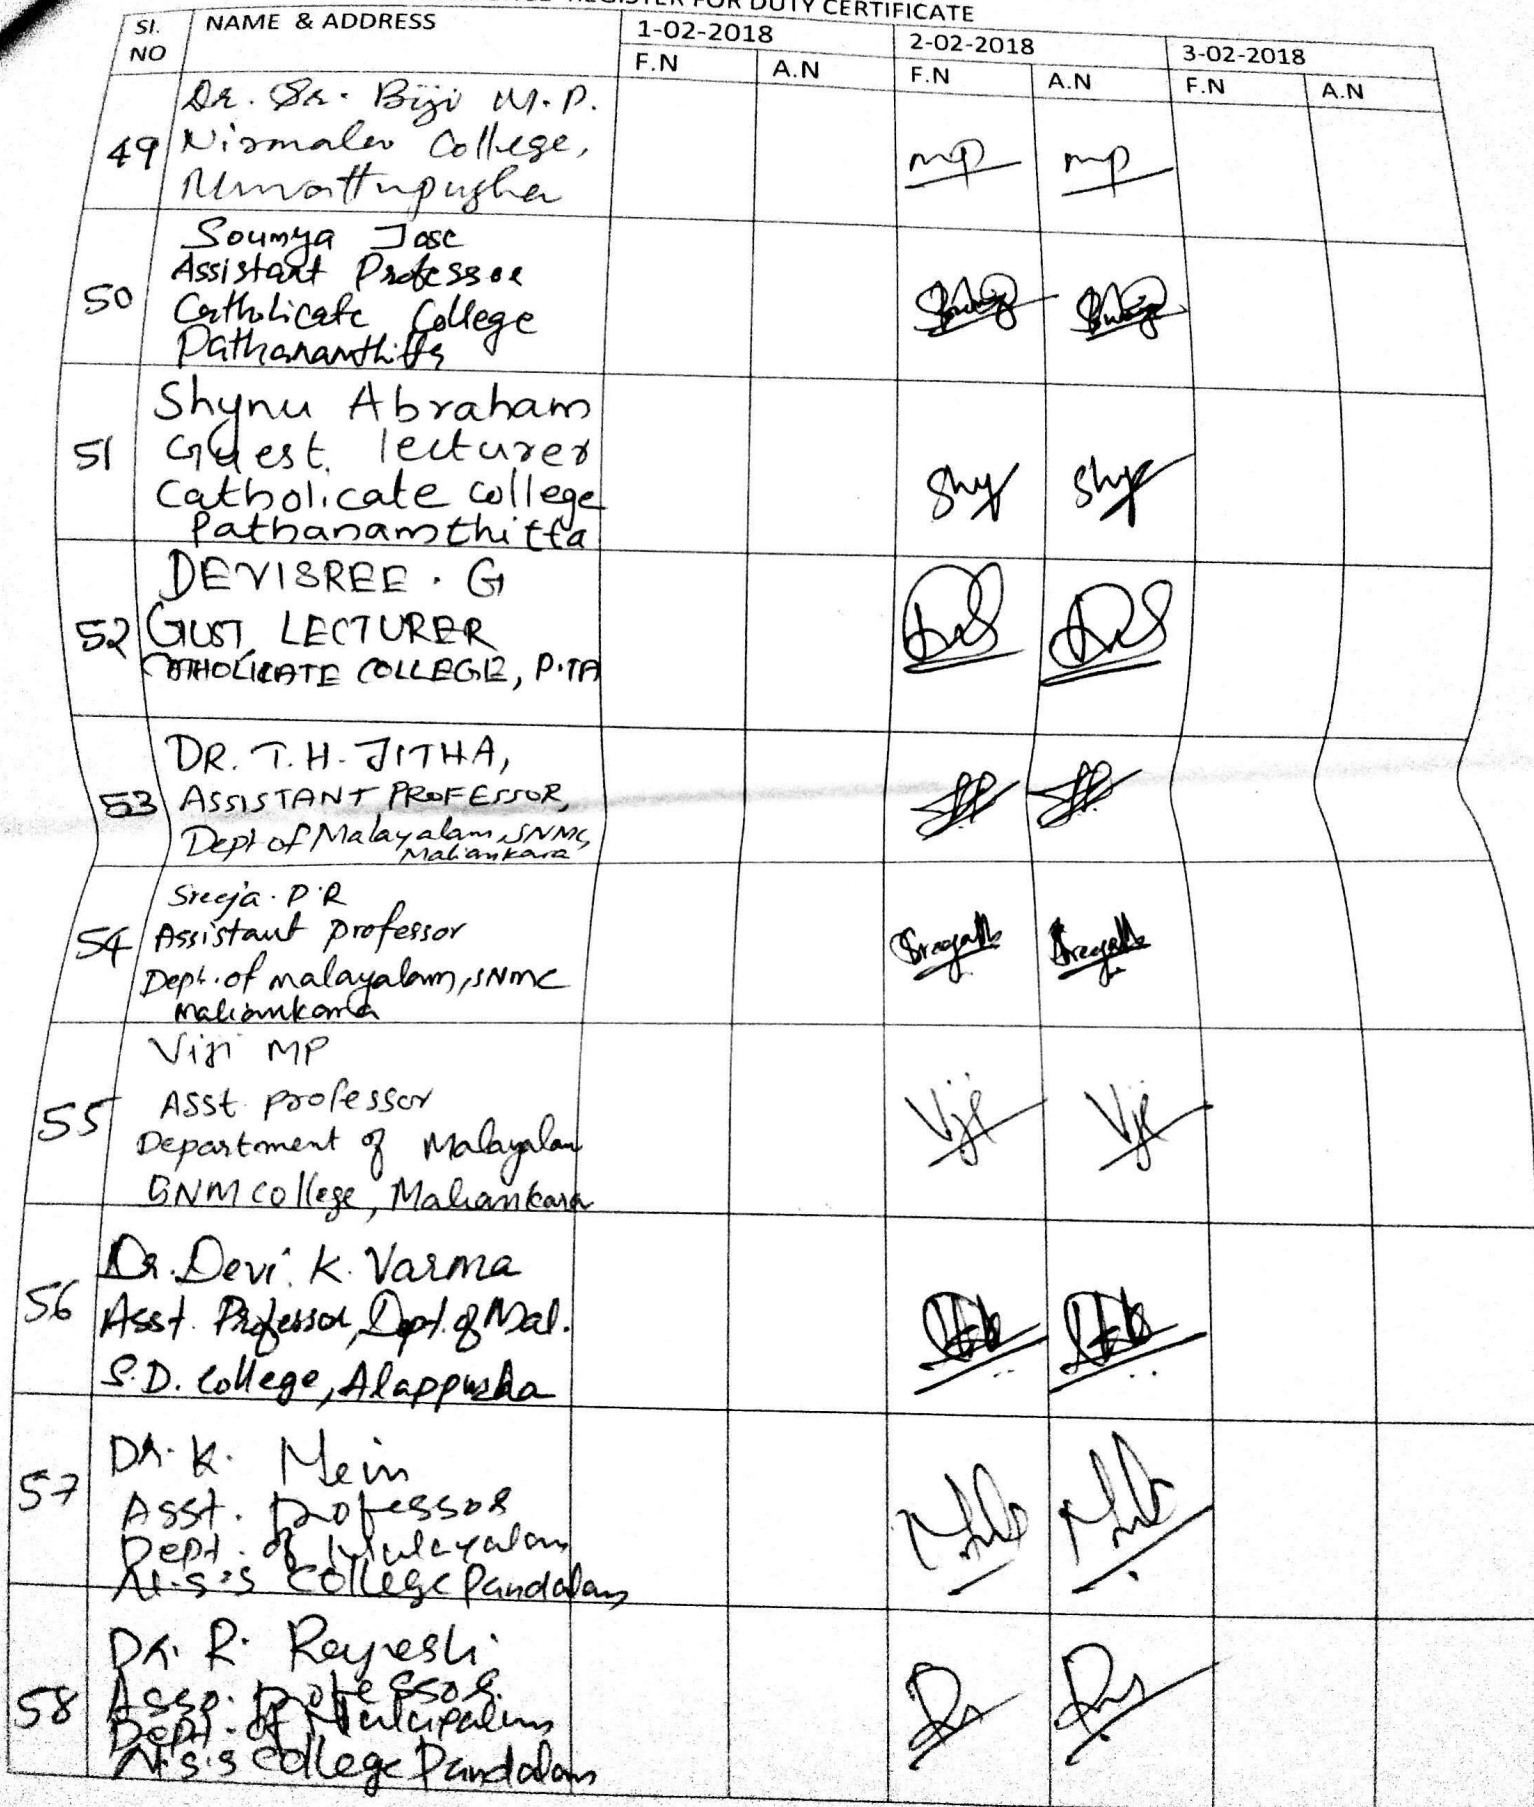 REGISTER FOR DUTY CERTIFICATE
Sl. NO NAME & ADDRESS 1-02-2018 2-02-2018 3-02-2018
F.N A.N F.N A.N F.N A.N
49 Dr. Sr. Biji M.P. mp mp
Nirmala College,
Muvattupuzha
50 Soumya Jose
Assistant Professor
Catholicate College
Pathanamthitta
51 Shynu Abraham Shy Shy
Guest lecturer
Catholicate college
Pathanamthitta
52 DEVISREE . G
GUST LECTURER
CATHOLICATE COLLEGE, P.TA
53 DR. T. H. JITHA,
ASSISTANT PROFESSOR,
Dept of Malayalam, SNMC,
Maliankara
54 Sreeja. P.R
Assistant professor
Dept. of malayalam, SNMC
Maliankara
55 Viji MP Viji Viji
Asst professor
Department of Malayalam
SNM college, Maliankara
56 Dr. Devi. K. Varma
Asst. Professor, Dept. of Mal.
S.D. College, Alappuzha
57 Dr. K.
Asst. professor
Dept. of Malayalam
N.S.S College Pandalam
58 Dr. R. Rajesh.
Asso. professor.
Dept. of Malayalam
N.S.S College Pandalam